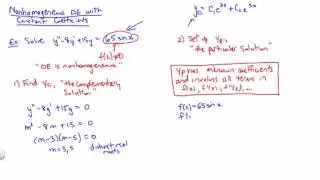 Nonhomogeneous DE with
Constant Coefficients
Ex: Solve y'' - 8y' + 15y = 65 sin x
f(x) ≠ 0
"DE is nonhomogeneous"
1) Find yc, "the complementary
solution"
y'' - 8y' + 15y = 0
m² - 8m + 15 = 0
(m-3)(m-5) = 0
m = 3, 5 distinct real
roots
yc = C₁e³ˣ + C₂e⁵ˣ
2) Set up yp,
"the particular solution"
yp has unknown coefficients
and involves all terms in
f(x), f'(x), f''(x), ...
f(x) = 65 sin x
f'